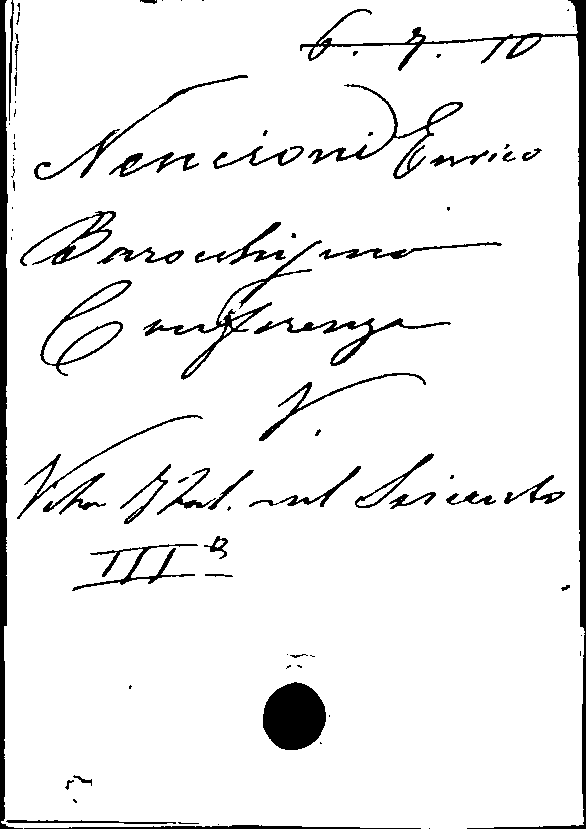 6. 7. 10
Nencioni Enrico
Barocchismo
Conferenza
V.
Vita Ital. nel Seicento
III a